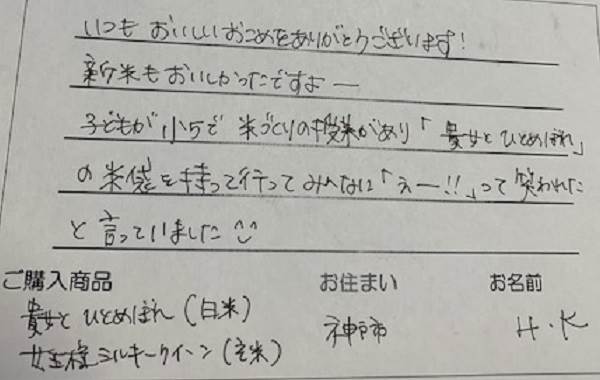 いつも おいしいおこめをありがとうございます!
新米もおいしかったですよー
子どもが小5で 米づくりの授業があり「貴女と ひとめぼれ」
の米袋を持って行ってみんなに「えー!!」って笑われた
と言っていました
ご購入商品 お住まい お名前
貴女と ひとめぼれ (白米) 神戸市 H・K
女王様ミルキークイーン (玄米)